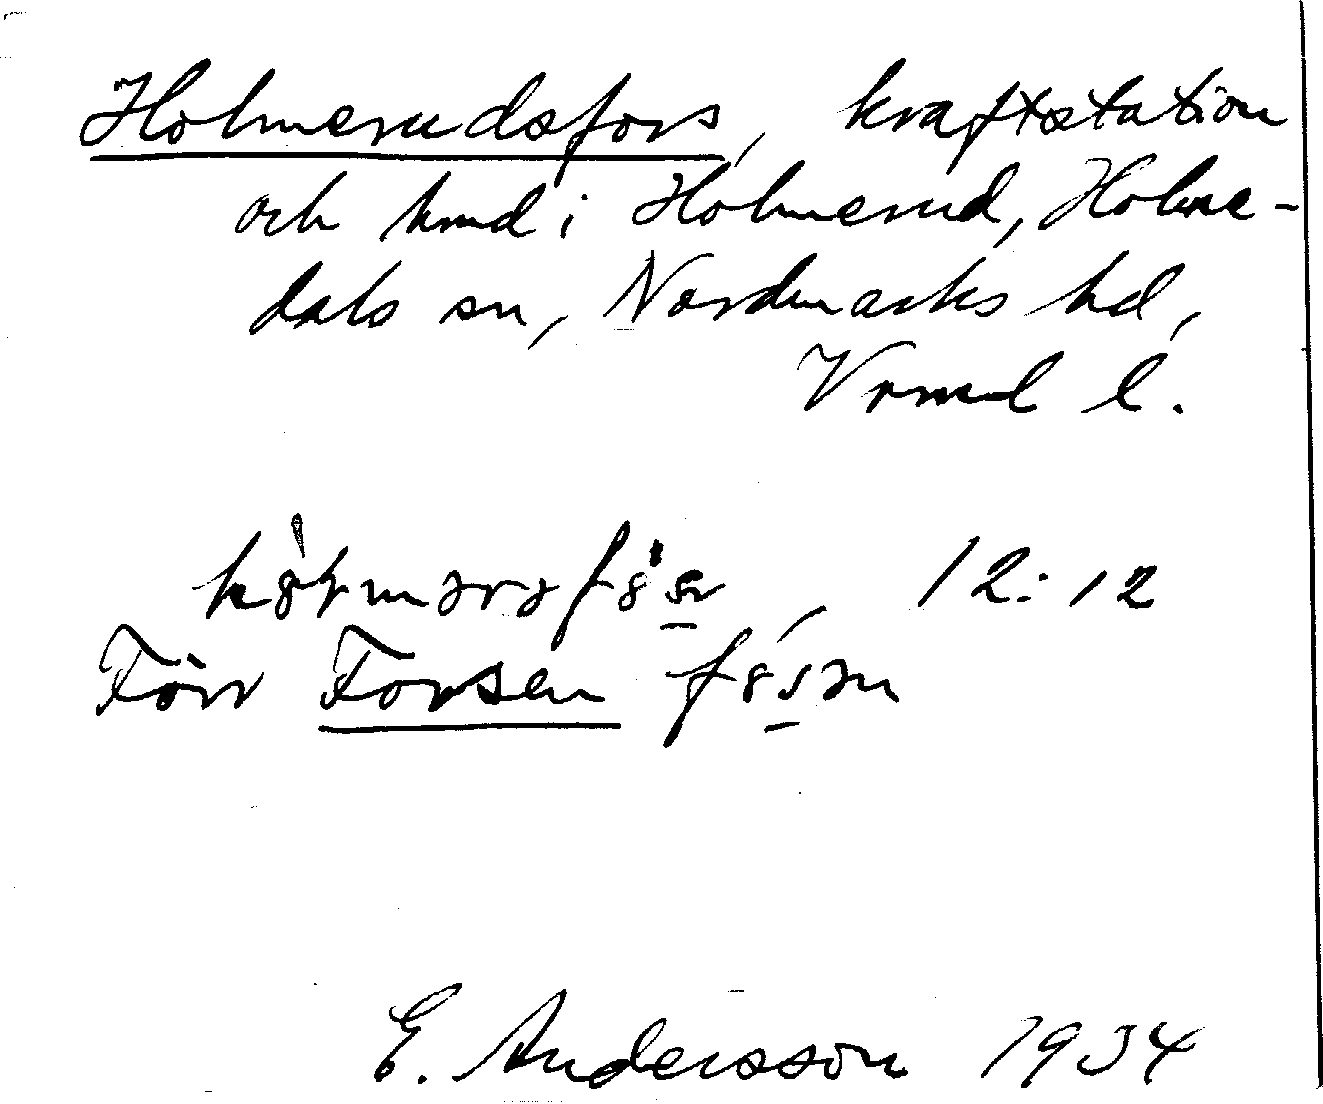 Holmerudsfors, kraftstation
och hmd i Holmerud, Holme-
dals sn, Nordmarks hd,
Vrmd l.
12:12
Förr Forsen
E. Andersson 1934